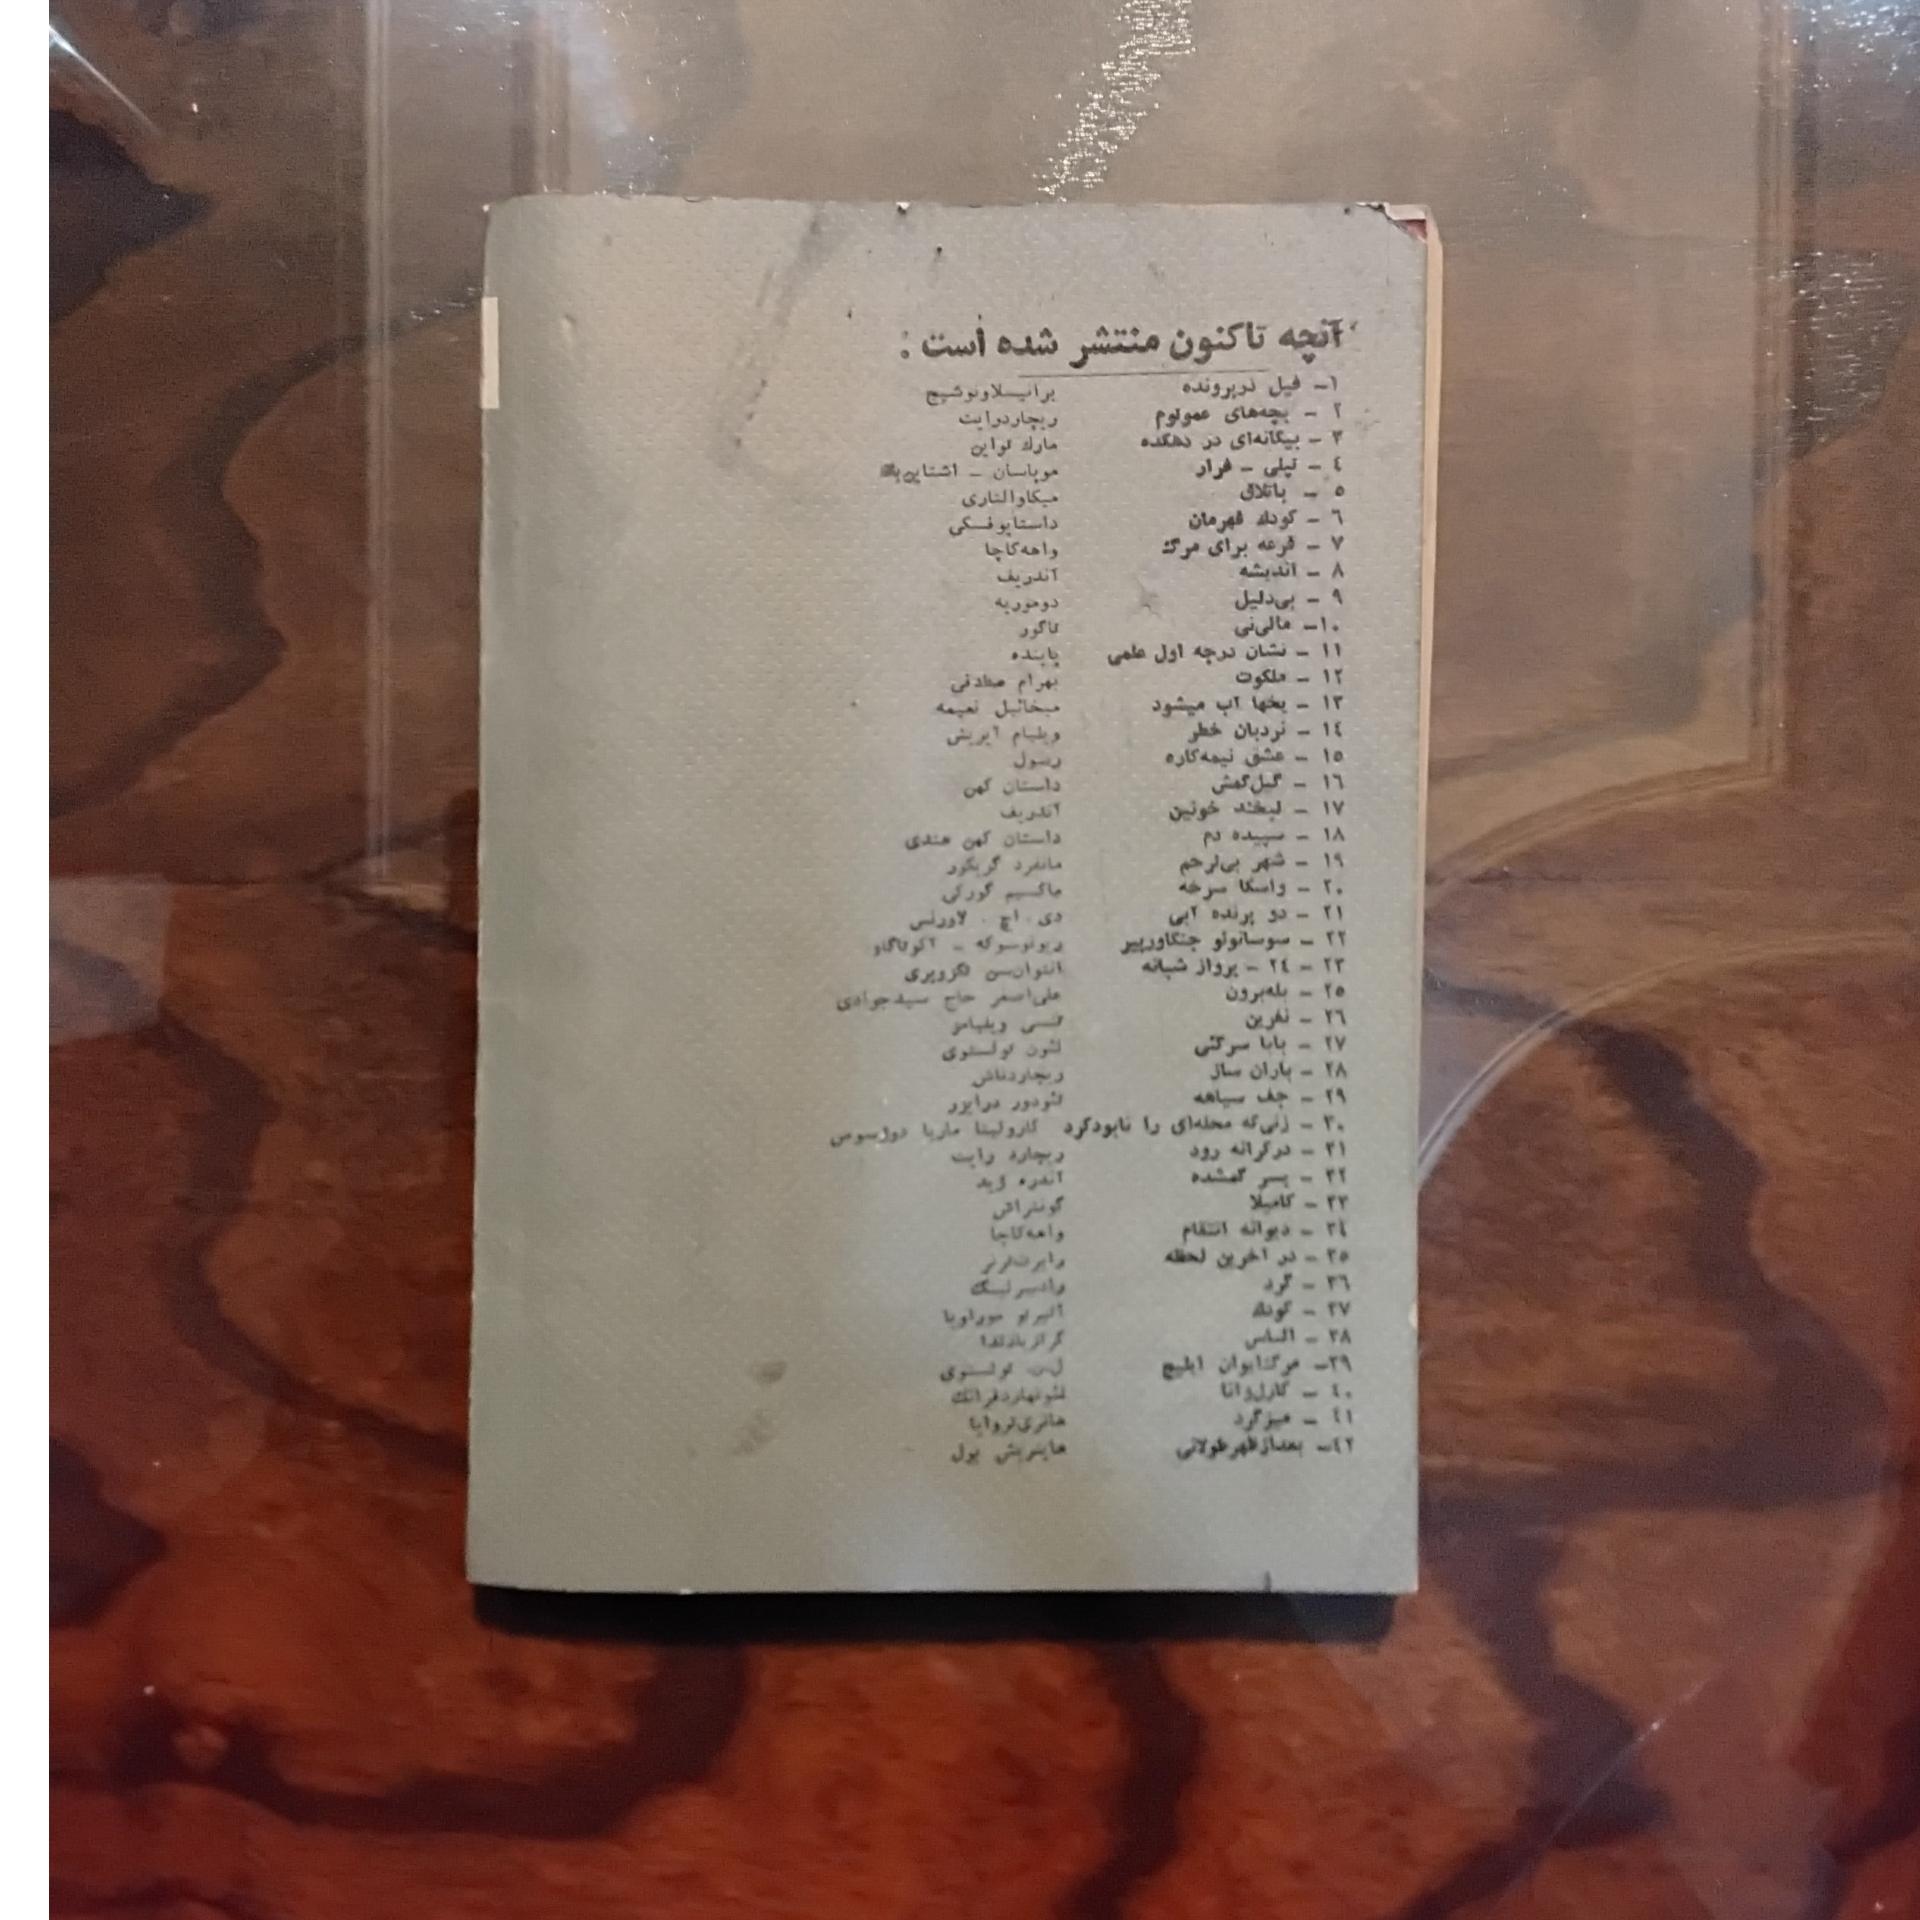 آنچه تاکنون منتشر شده است :
۱- فیل در پرونده برانیسلاونوشیچ
۲ - بچه‌های عموتوم ریچاردرایت
۳ - بیگانه‌ای در دهکده مارك تواین
٤ - تپلی - فرار موپاسان - اشتاین‌بك
٥ - باتلاق میکاوالتاری
٦ - کودك قهرمان داستایوفسکی
۷ - قرعه برای مرگ واهه‌کاچا
۸ - اندیشه آندریف
۹ - بی‌دلیل دوموریه
۱۰- مالی‌نی تاگور
۱۱ - نشان درجه اول علمی پاینده
۱۲ - ملکوت بهرام صادقی
۱۳ - یخها آب میشود میخائیل نعیمه
۱٤ - نردبان خطر ویلیام آیریش
۱٥ - عشق نیمه‌کاره رسول
۱٦ - گیل‌گمش داستان کهن
۱۷ - لبخند خونین آندریف
۱۸ - سپیده دم داستان کهن هندی
۱۹ - شهر بی‌ترحم مانفرد گریگور
۲۰ - واسکا سرخه ماکسیم گورکی
۲۱ - دو پرنده آبی دی . اچ . لاورنس
۲۲ - سوسانوئو جنگاورپیر ریونوسوکه - آکوتاگاو
۲۳ - ۲٤ - پرواز شبانه آنتوان‌سن تگزوپری
۲٥ - بله‌برون علی‌اصغر حاج سیدجوادی
۲٦ - نفرین تنسی ویلیامز
۲۷ - بابا سرگئی لئون تولستوی
۲۸ - باران ساز ریچاردناش
۲۹ - جف سیاهه تئودور درایزر
۳۰ - زنی‌که محله‌ای را نابودکرد کارولینا ماریا دوژسوس
۳۱ - درکرانه رود ریچارد رایت
۳۲ - پسر گمشده آندره ژید
۳۳ - کامیلا
۳٤ - دیوانه انتقام واهه‌کاچا
۳٥ - در آخرین لحظه
۳٦ - گرد
۳۷ - کودك آلبرتو موراویا
۳۸ - الماس گراتزیادلدا
۳۹- مرگ‌ایوان ایلیچ ل.ن تولستوی
٤۰ - کارل‌وانا لئونهاردفرانک
٤۱ - میزگرد هانری‌تروایا
٤۲- بعدازظهرطولانی هاینریش بول